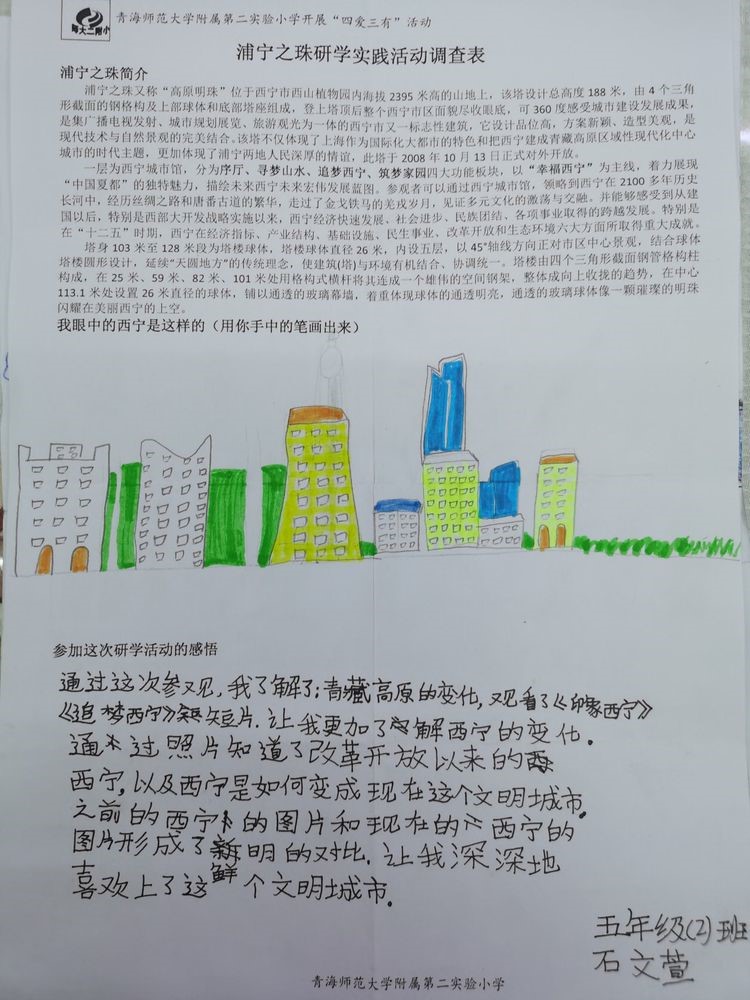 师大二附小
青海师范大学附属第二实验小学开展“四爱三有”活动
浦宁之珠研学实践活动调查表
浦宁之珠简介
浦宁之珠又称“高原明珠”位于西宁市西山植物园内海拔 2395 米高的山地上，该塔设计总高度 188 米，由 4 个三角
形截面的钢格构及上部球体和底部塔座组成，登上塔顶后整个西宁市区面貌尽收眼底，可 360 度感受城市建设发展成果，
是集广播电视发射、城市规划展览、旅游观光为一体的西宁市又一标志性建筑，它设计品位高，方案新颖、造型美观，是
现代技术与自然景观的完美结合。该塔不仅体现了上海作为国际化大都市的特色和把西宁建成青藏高原区域性现代化中心
城市的时代主题，更加体现了浦宁两地人民深厚的情谊，此塔于 2008 年 10 月 13 日正式对外开放。
一层为西宁城市馆，分为序厅、寻梦山水、追梦西宁、筑梦家园四大功能板块，以“幸福西宁”为主线，着力展现
“中国夏都”的独特魅力，描绘未来西宁未来宏伟发展蓝图。参观者可以通过西宁城市馆，领略到西宁在 2100 多年历史
长河中，经历丝绸之路和唐番古道的繁华，走过了金戈铁马的羌戎岁月，见证多元文化的激荡与交融。并能够感受到从建
国以后，特别是西部大开发战略实施以来，西宁经济快速发展、社会进步、民族团结、各项事业取得的跨越发展。特别是
在“十二五”时期，西宁在经济指标、产业结构、基础设施、民生事业、改革开放和生态环境六大方面所取得重大成就。
塔身 103 米至 128 米段为塔楼球体，塔楼球体直径 26 米，内设五层，以 45°轴线方向正对市区中心景观，结合球体
塔楼圆形设计，延续“天圆地方”的传统理念，使建筑(塔)与环境有机结合、协调统一。塔楼由四个三角形截面钢管格构柱
构成，在 25 米、59 米、82 米、101 米处用格构式横杆将其连成一个雄伟的空间钢架，整体成向上收拢的趋势，在中心
113.1 米处设置 26 米直径的球体，铺以通透的玻璃幕墙，着重体现球体的通透明亮，通透的玻璃球体像一颗璀璨的明珠
闪耀在美丽西宁的上空。
我眼中的西宁是这样的（用你手中的笔画出来）
参加这次研学活动的感悟
通过这次参观，我了解了；青藏高原的变化，观看了《印象西宁》
《追梦西宁》短片．让我更加了解西宁的变化．
通过照片知道了改革开放以来的
西宁，以及西宁是如何变成现在这个文明城市．
之前的西宁的图片和现在的西宁的
图片形成了鲜明的对比．让我深深地
喜欢上了这个文明城市．
五年级(2)班
石文萱
青海师范大学附属第二实验小学